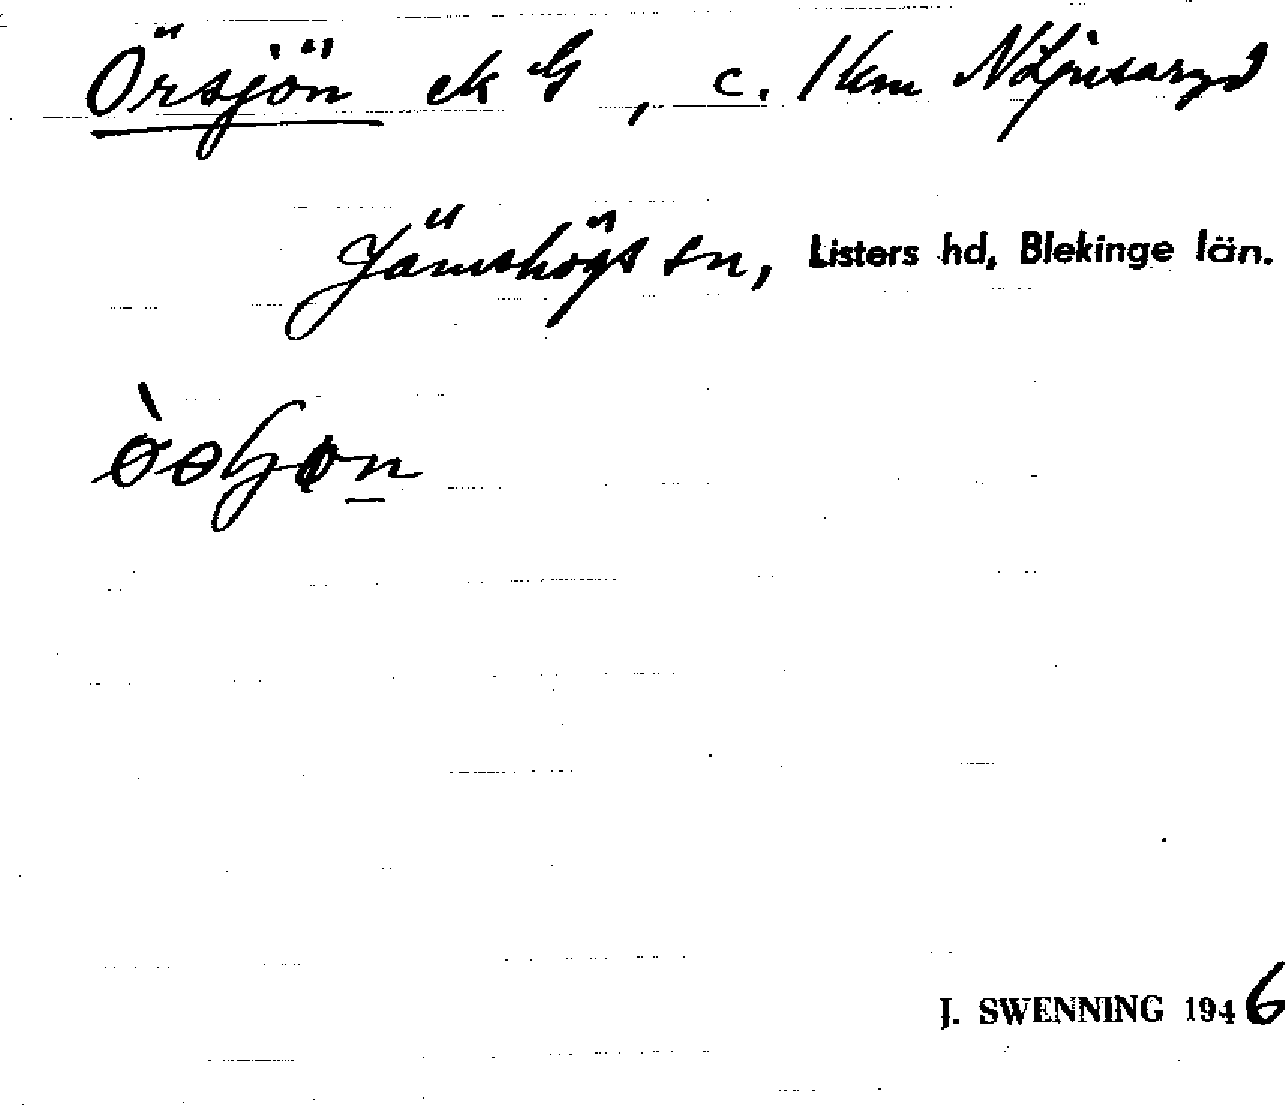 Örsjön ek G, c. 1 km N Ljusaryd
Jämshögs sn, Listers hd, Blekinge län.
J. SWENNING 1946